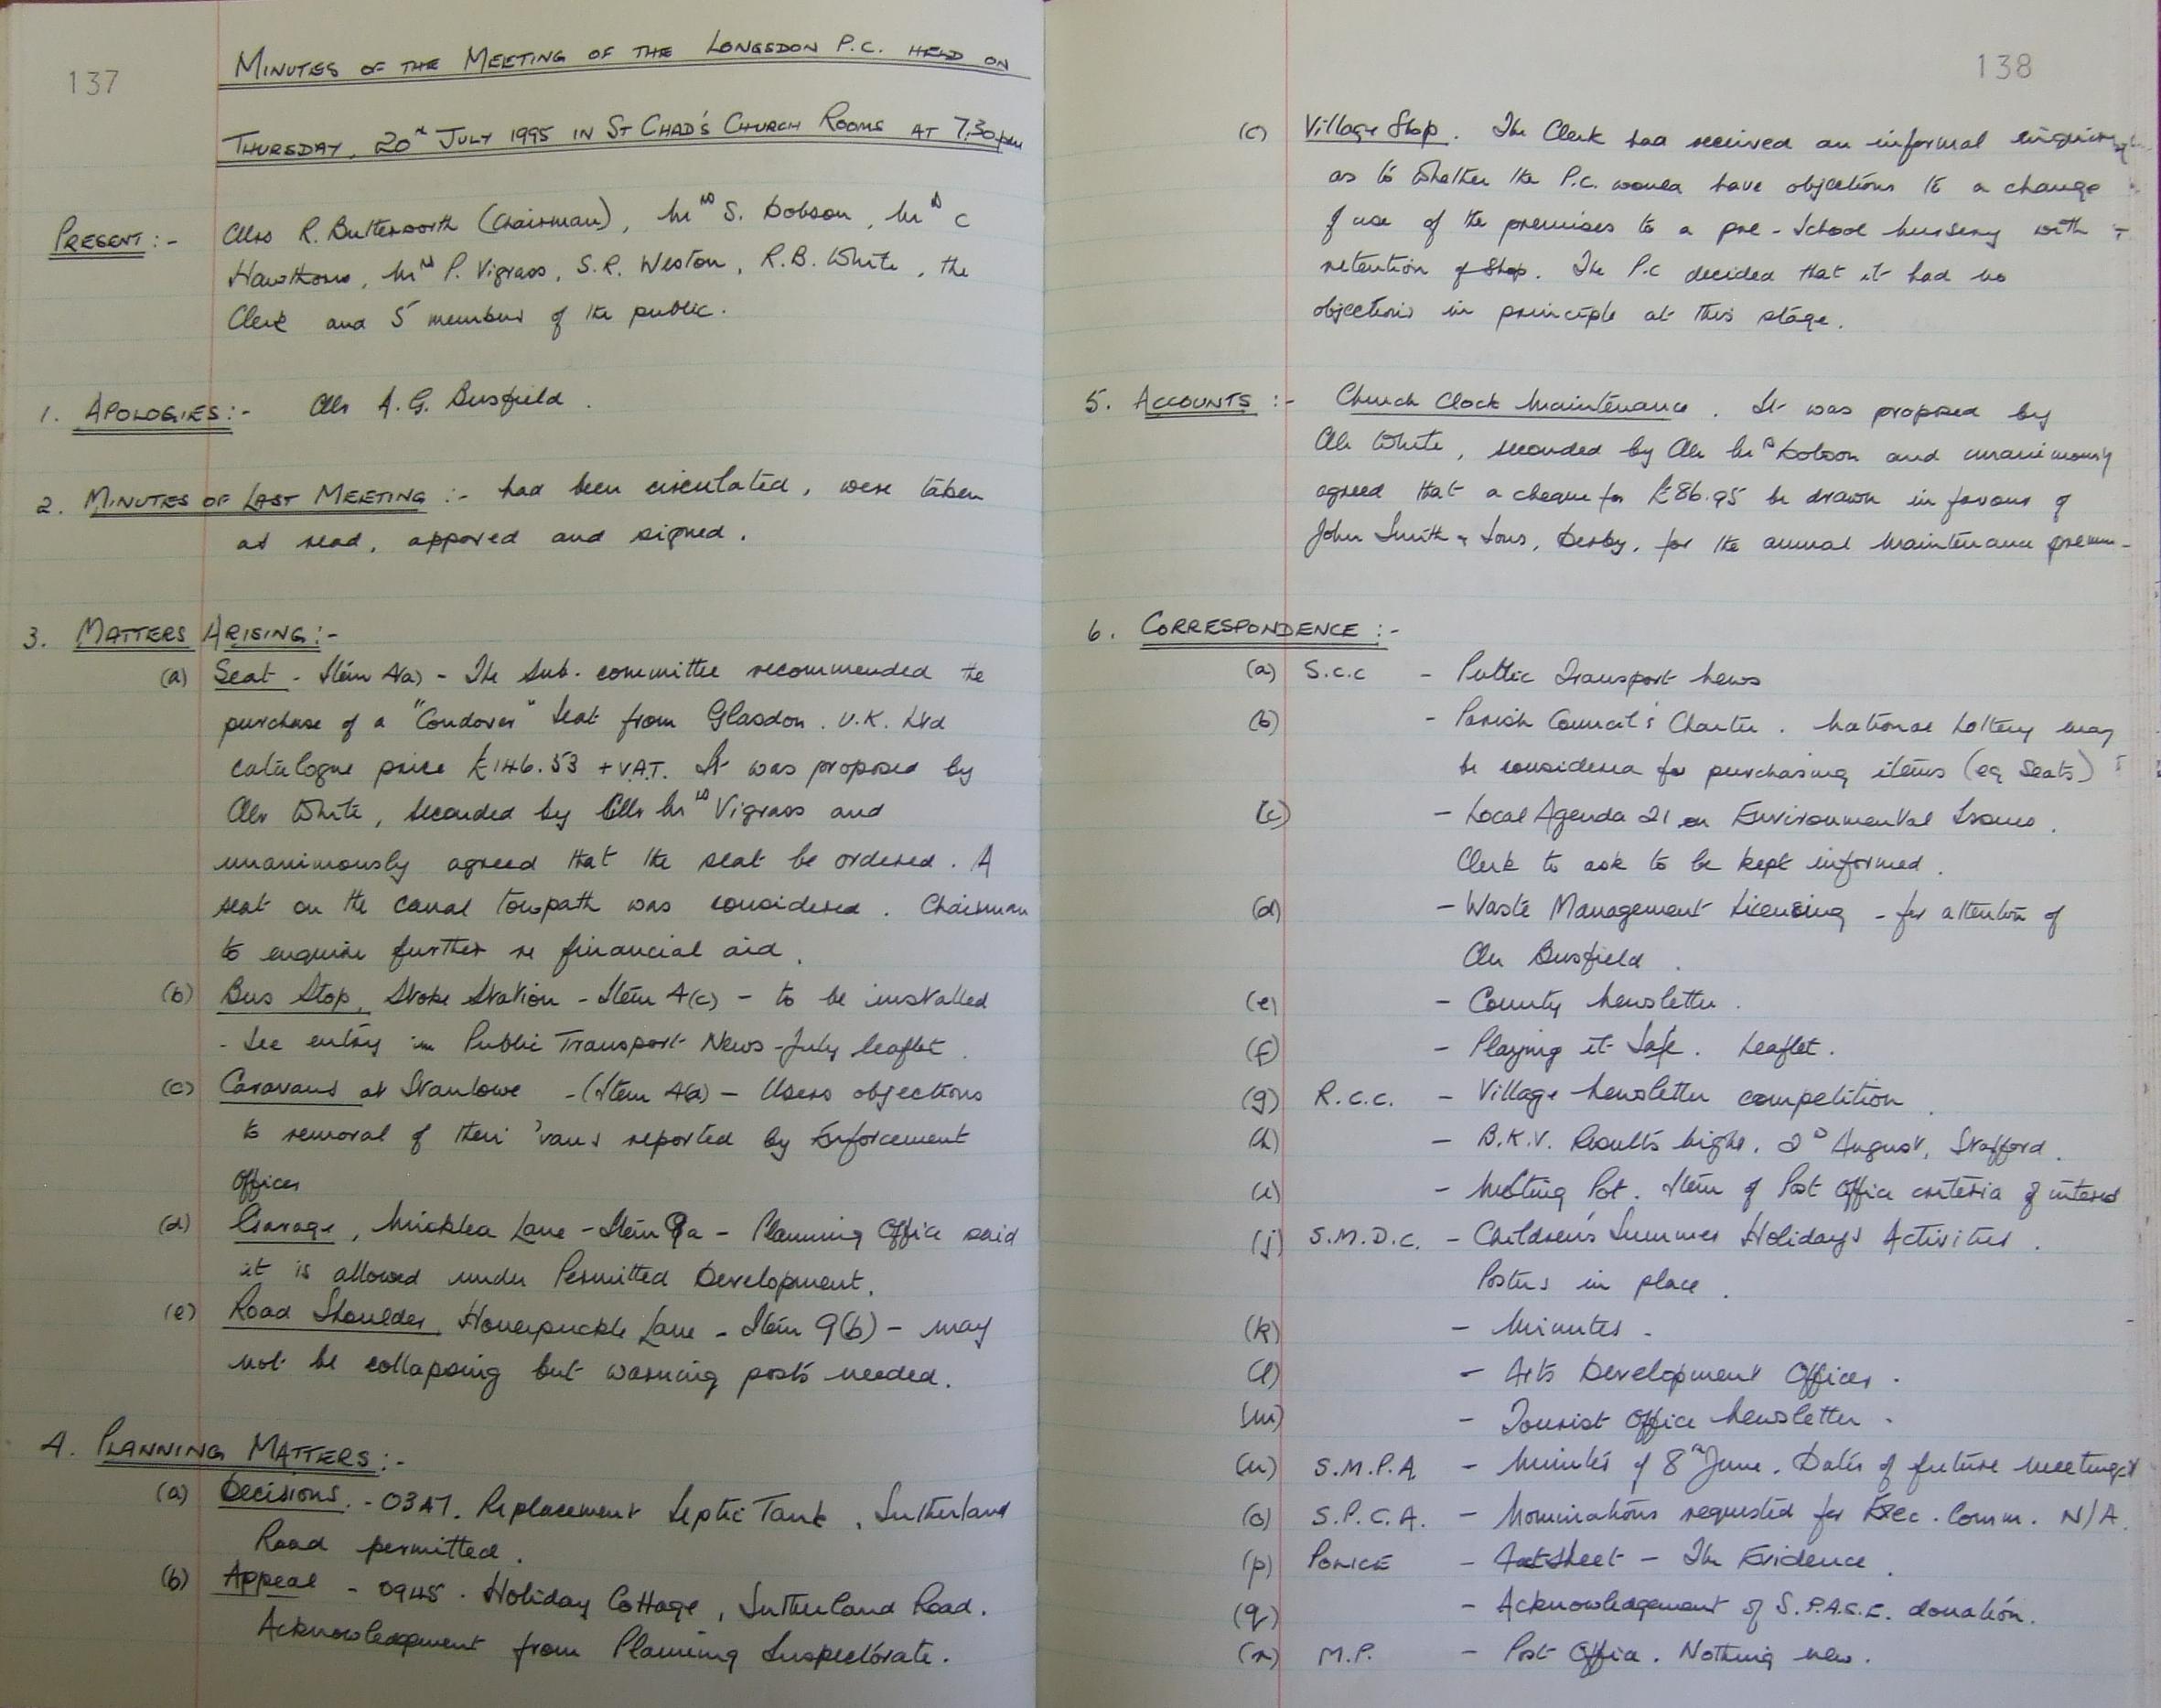 137
MINUTES OF THE MEETING OF THE LONGSDON P.C. HELD ON
THURSDAY, 20th JULY 1995 IN ST CHAD'S CHURCH ROOMS AT 7.30pm
PRESENT :- Cllrs R. Butterworth (Chairman), Mrs S. Dobson, Mrs C
Hawthorne, Mrs P. Vigrass, S.R. Weston, R.B. White, the
Clerk and 5 members of the public.
1. APOLOGIES :- Cllr A.G. Busfield.
2. MINUTES OF LAST MEETING :- had been circulated, were taken
as read, approved and signed.
3. MATTERS ARISING :-
(a) Seat - Item 4(a) - The Sub-committee recommended the
purchase of a "Condover" seat from Glasdon. U.K. Ltd
catalogue price £146.53 + V.A.T. It was proposed by
Cllr White, seconded by Cllr Mrs Vigrass and
unanimously agreed that the seat be ordered. A
seat on the canal towpath was considered. Chairman
to enquire further re financial aid.
(b) Bus Stop, Stoke Station - Item 4(c) - to be installed
- See entry in Public Transport News - July leaflet.
(c) Caravans at Stanlowe - (Item 4(a) - Users objections
to removal of their 'vans reported by Enforcement
Officer
(d) Garage, Micklea Lane - Item 9a - Planning Office said
it is allowed under Permitted Development.
(e) Road Shoulder, Honeysuckle Lane - Item 9(b) - may
not be collapsing but warning posts needed.
4. PLANNING MATTERS :-
(a) Decisions. - 0347. Replacement Septic Tank, Sutherland
Road permitted.
(b) Appeal - 0945. Holiday Cottage, Sutherland Road.
Acknowledgement from Planning Inspectorate.
138
(c) Village Shop. The Clerk had received an informal enquiry
as to whether the P.C. would have objections to a change
of use of the premises to a pre-school nursery with
retention of shop. The P.C decided that it had no
objections in principle at this stage.
5. ACCOUNTS :- Church Clock Maintenance. It was proposed by
Cllr White, seconded by Cllr Mrs Dobson and unanimously
agreed that a cheque for £86.95 be drawn in favour of
John Smith & Sons, Derby, for the annual maintenance
6. CORRESPONDENCE :-
(a) S.C.C - Public Transport News
(b) - Parish Council's Charter. National Lottery may
be considered for purchasing items (eg Seats)
(c) - Local Agenda 21 on Environmental Issues.
Clerk to ask to be kept informed.
(d) - Waste Management Licensing - for attention of
Cllr Busfield.
(e) - County Newsletter.
(f) - Playing it Safe. Leaflet.
(g) R.C.C. - Village Newsletter competition.
(h) - B.K.V. Results Night. 2nd August, Stafford.
(i) - Melting Pot. Item of Post Office criteria of interest
(j) S.M.D.C. - Children's Summer Holidays Activities.
Posters in place.
(k) - Minutes.
(l) - Arts Development Officer.
(m) - Tourist Office Newsletter.
(n) S.M.P.A. - Minutes of 8th June. Dates of future meetings
(o) S.P.C.A. - Nominations requested for Exec. Comm. N/A.
(p) POLICE - Factsheet - The Evidence.
(q) - Acknowledgement of S.P.A.C.E. donation.
(r) M.P. - Post Office. Nothing new.